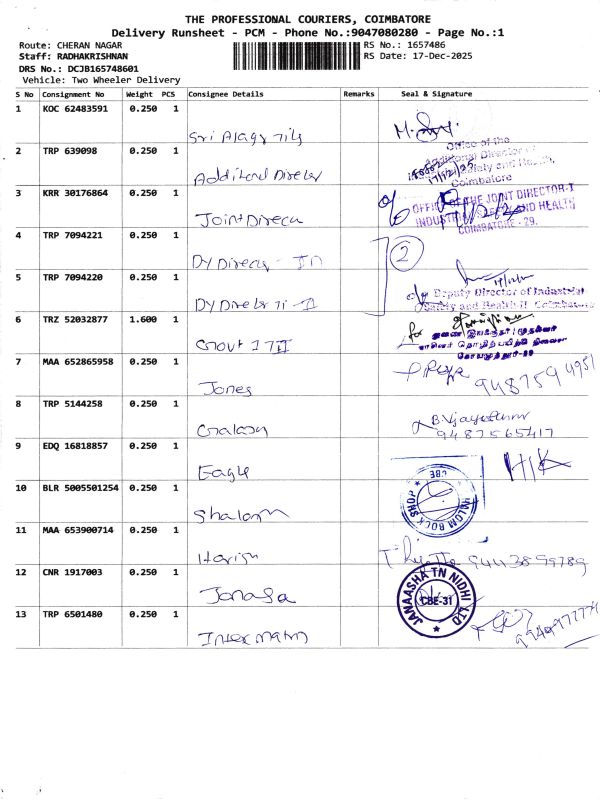 THE PROFESSIONAL COURIERS, COIMBATORE
Delivery Runsheet - PCM - Phone No.:9047080280 - Page No.:1
Route: CHERAN NAGAR
RS No.: 1657486
Staff: RADHAKRISHNAN
RS Date: 17-Dec-2025
DRS No.: DCJB165748601
Vehicle: Two Wheeler Delivery
S No Consignment No Weight PCS Consignee Details Remarks Seal & Signature
1 KOC 62483591 0.250 1
Sri Alagu
2 TRP 639098 0.250 1
Office of the
Additional Director of
Safety and Health,
Coimbatore
17/12/25
3 KRR 30176864 0.250 1
Joint
OFFICE OF THE JOINT DIRECTOR-I
INDUSTRIAL SAFETY AND HEALTH
COIMBATORE - 29.
4 TRP 7094221 0.250 1
Dy
2
5 TRP 7094220 0.250 1
Dy
Deputy Director of Industrial
Safety and Health-II Coimbatore
6 TRZ 52032877 1.600 1
Govt ITI
for
துணை இயக்குநர் / முதல்வர்
அரசினர் தொழிற் பயிற்சி நிலையம்
கோயமுத்தூர்-29
7 MAA 652865958 0.250 1
Jones
Priya 9487594951
8 TRP 5144258 0.250 1
Galaxy
B.Vijayakumar
9487565417
9 EDQ 16818857 0.250 1
Eagle
10 BLR 5005501254 0.250 1
Shalom
SHALOM BOOK SHOP
CBE
11 MAA 653900714 0.250 1
Harish
9443899789
12 CNR 1917003 0.250 1
JANAASHA TN NIDHI LTD
CBE-31
13 TRP 6501480 0.250 1